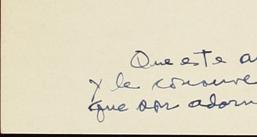 Que este a
y le conserve
que por adorn